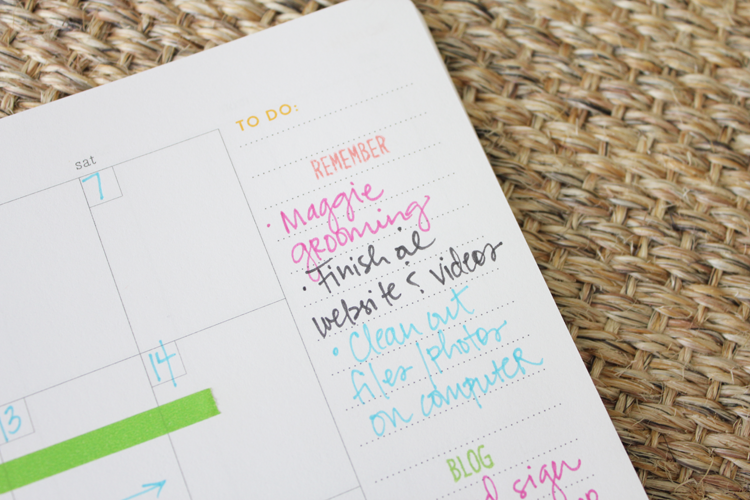 TO DO:
sat
7
REMEMBER
• Maggie
grooming
• Finish
website & videos
• Clean out
files/photos
on computer
14
13
BLOG
sign